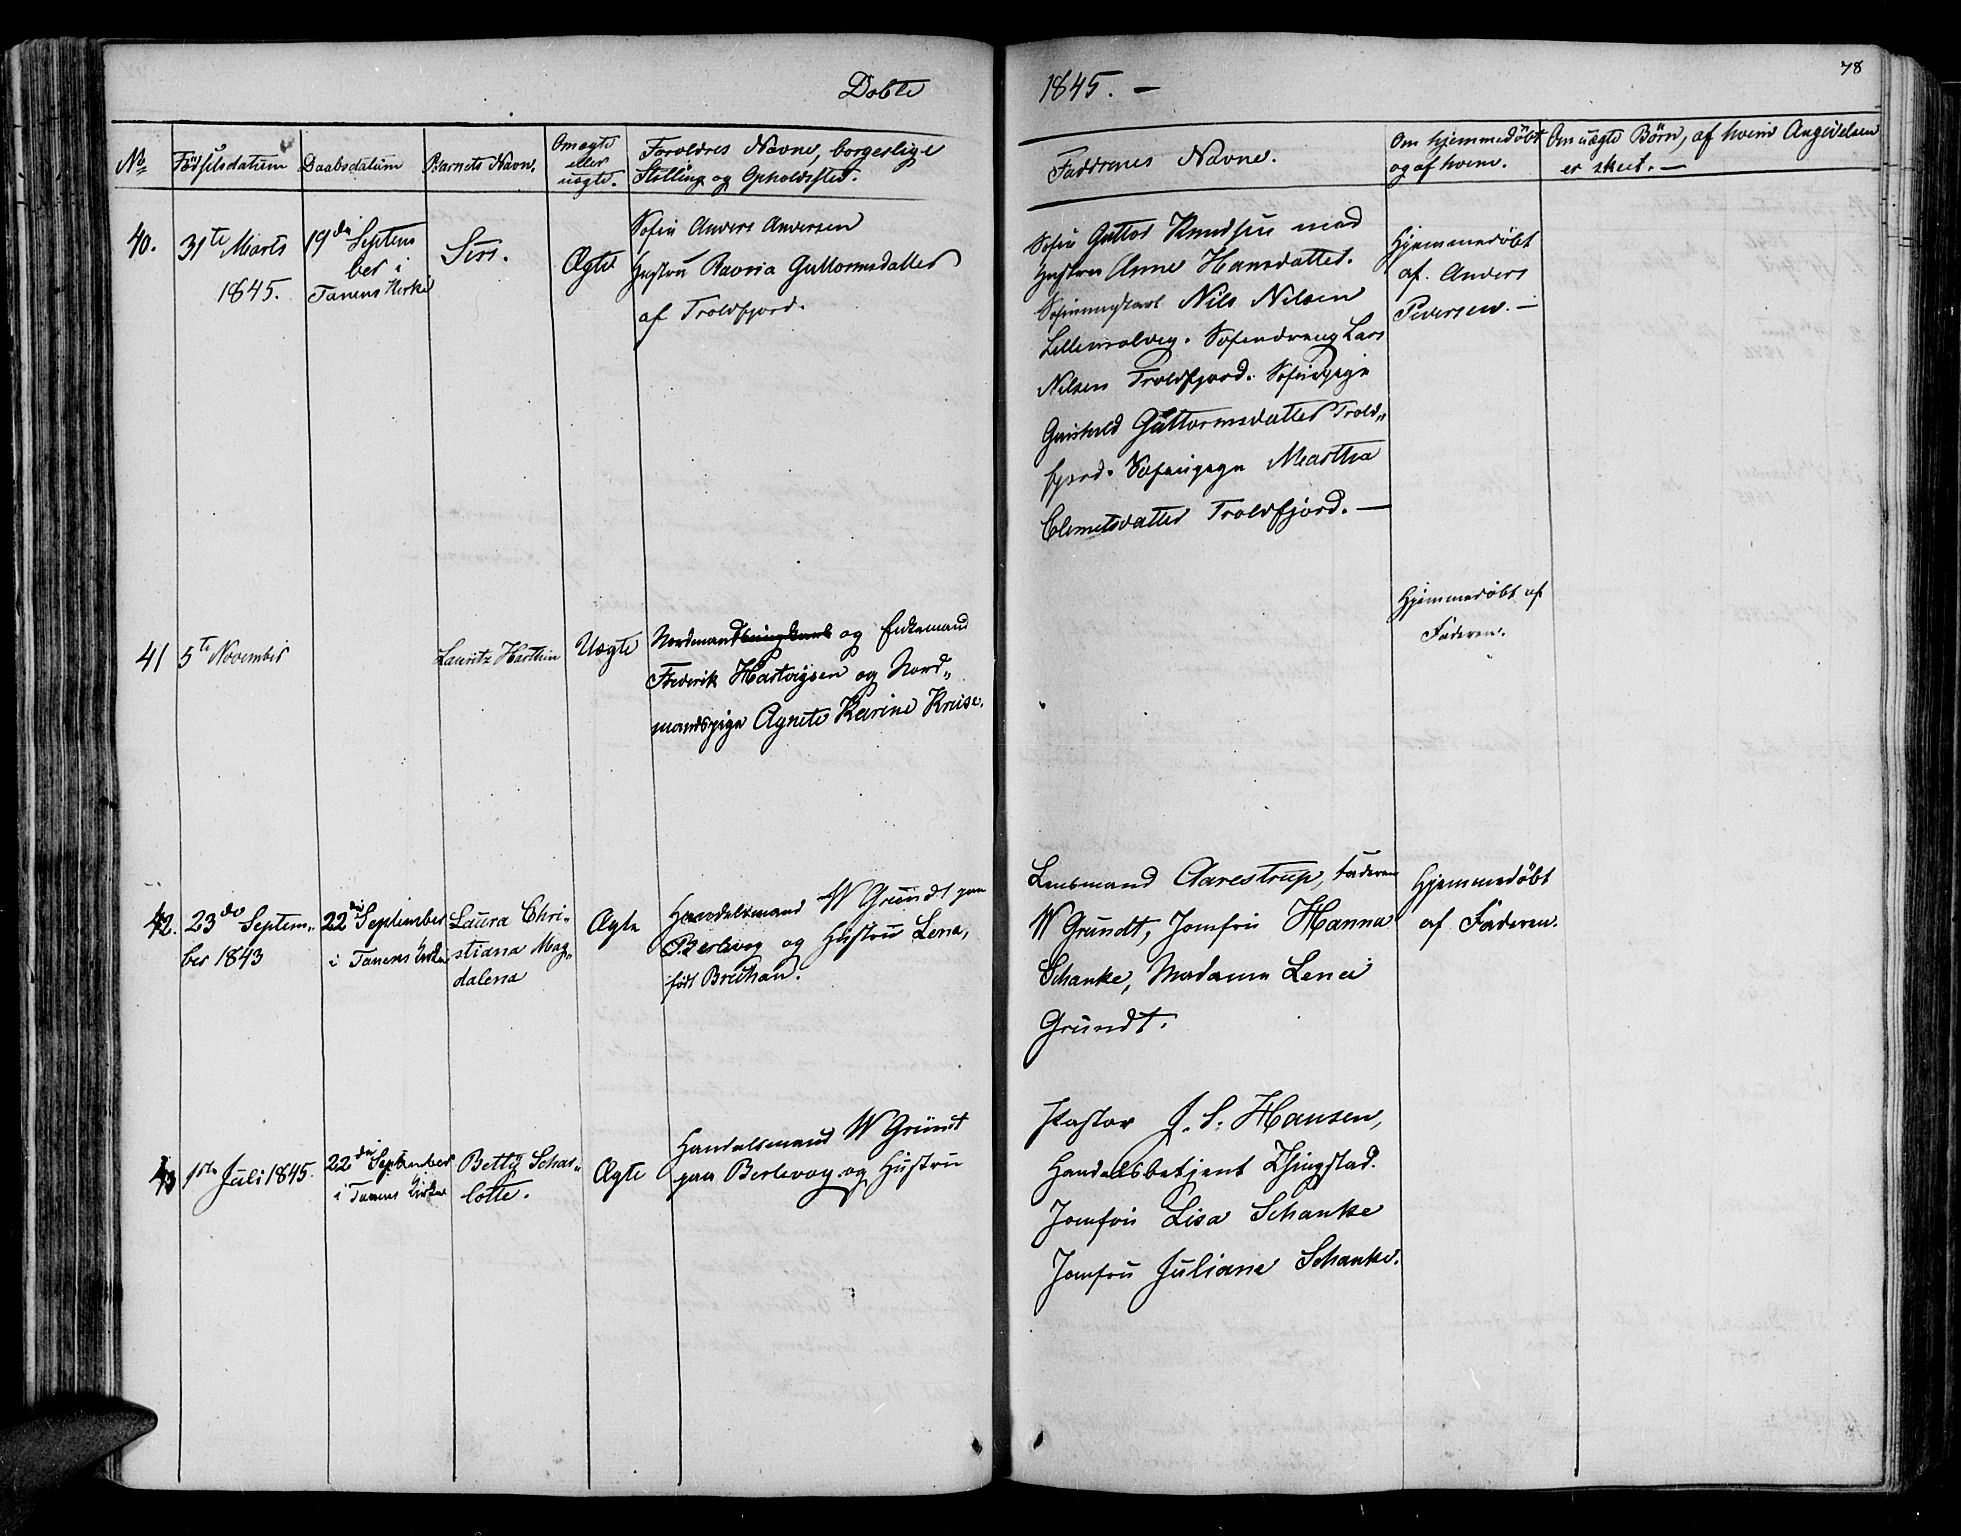 Døbte
1845. —
78
No
Fødselsdatum
Daabsdatum
Barnets Navn.
Om ægte
eller
uægte.
Forældres Navne, borgerlige
Stilling og Opholdssted.
Faddrenes Navne.
Om hjemmedøbt
og af hvem.
Om uægte Børn, af hvem Angivelsen
er skeet. —
40.
31te Marts
1845.
19de Septem
ber i
Tanens Kirke
Siri.
Ægte
Søfin Anders Andersen
Hustru Ravna Guttormsdatter
af Troldfjord.
Søfin Guttor Knudsen med
Hustru Anne Hansdatter.
Nils Nilsen
Søfindreng Lars
Nilsen Troldfjord. Søfinpige
Gunhild Guttormsdatter Trold„
fjord. Søfinpige Martha
Clemetsdatter Troldfjord. —
Hjemmedøbt
af Anders
Pedersen. —
41
5te November
Lauritz Harthin
Uægte
Nordmand og Enkemand
Frederik Hartvigsen og Nord„
mandspige Agnete Karine Kruse.
Hjemmedøbt af
Faderen.
42.
23de Septem„
ber 1843
22de September
i Tanens Kirke
Laura Chri„
stiana Mag„
dalena
Ægte
Handelsmand W Grundt paa
Berlevog og Hustru Lena,
født Bruhan.
Lensmand Aarestrup, Faderen
W Grundt, Jomfru Hanna
Schanke, Madame Lena
Grundt.
Hjemmedøbt
af Faderen.
43
1ste Juli 1845.
22de September
i Tanens Kirke
Betty Schar„
lotte.
Ægte
Handelsmand W Grundt
paa Berlevog og Hustru
Pastor J. S. Hansen,
Handelsbetjent
Jomfru Lisa Schanke
Jomfru Juliane Schanke.